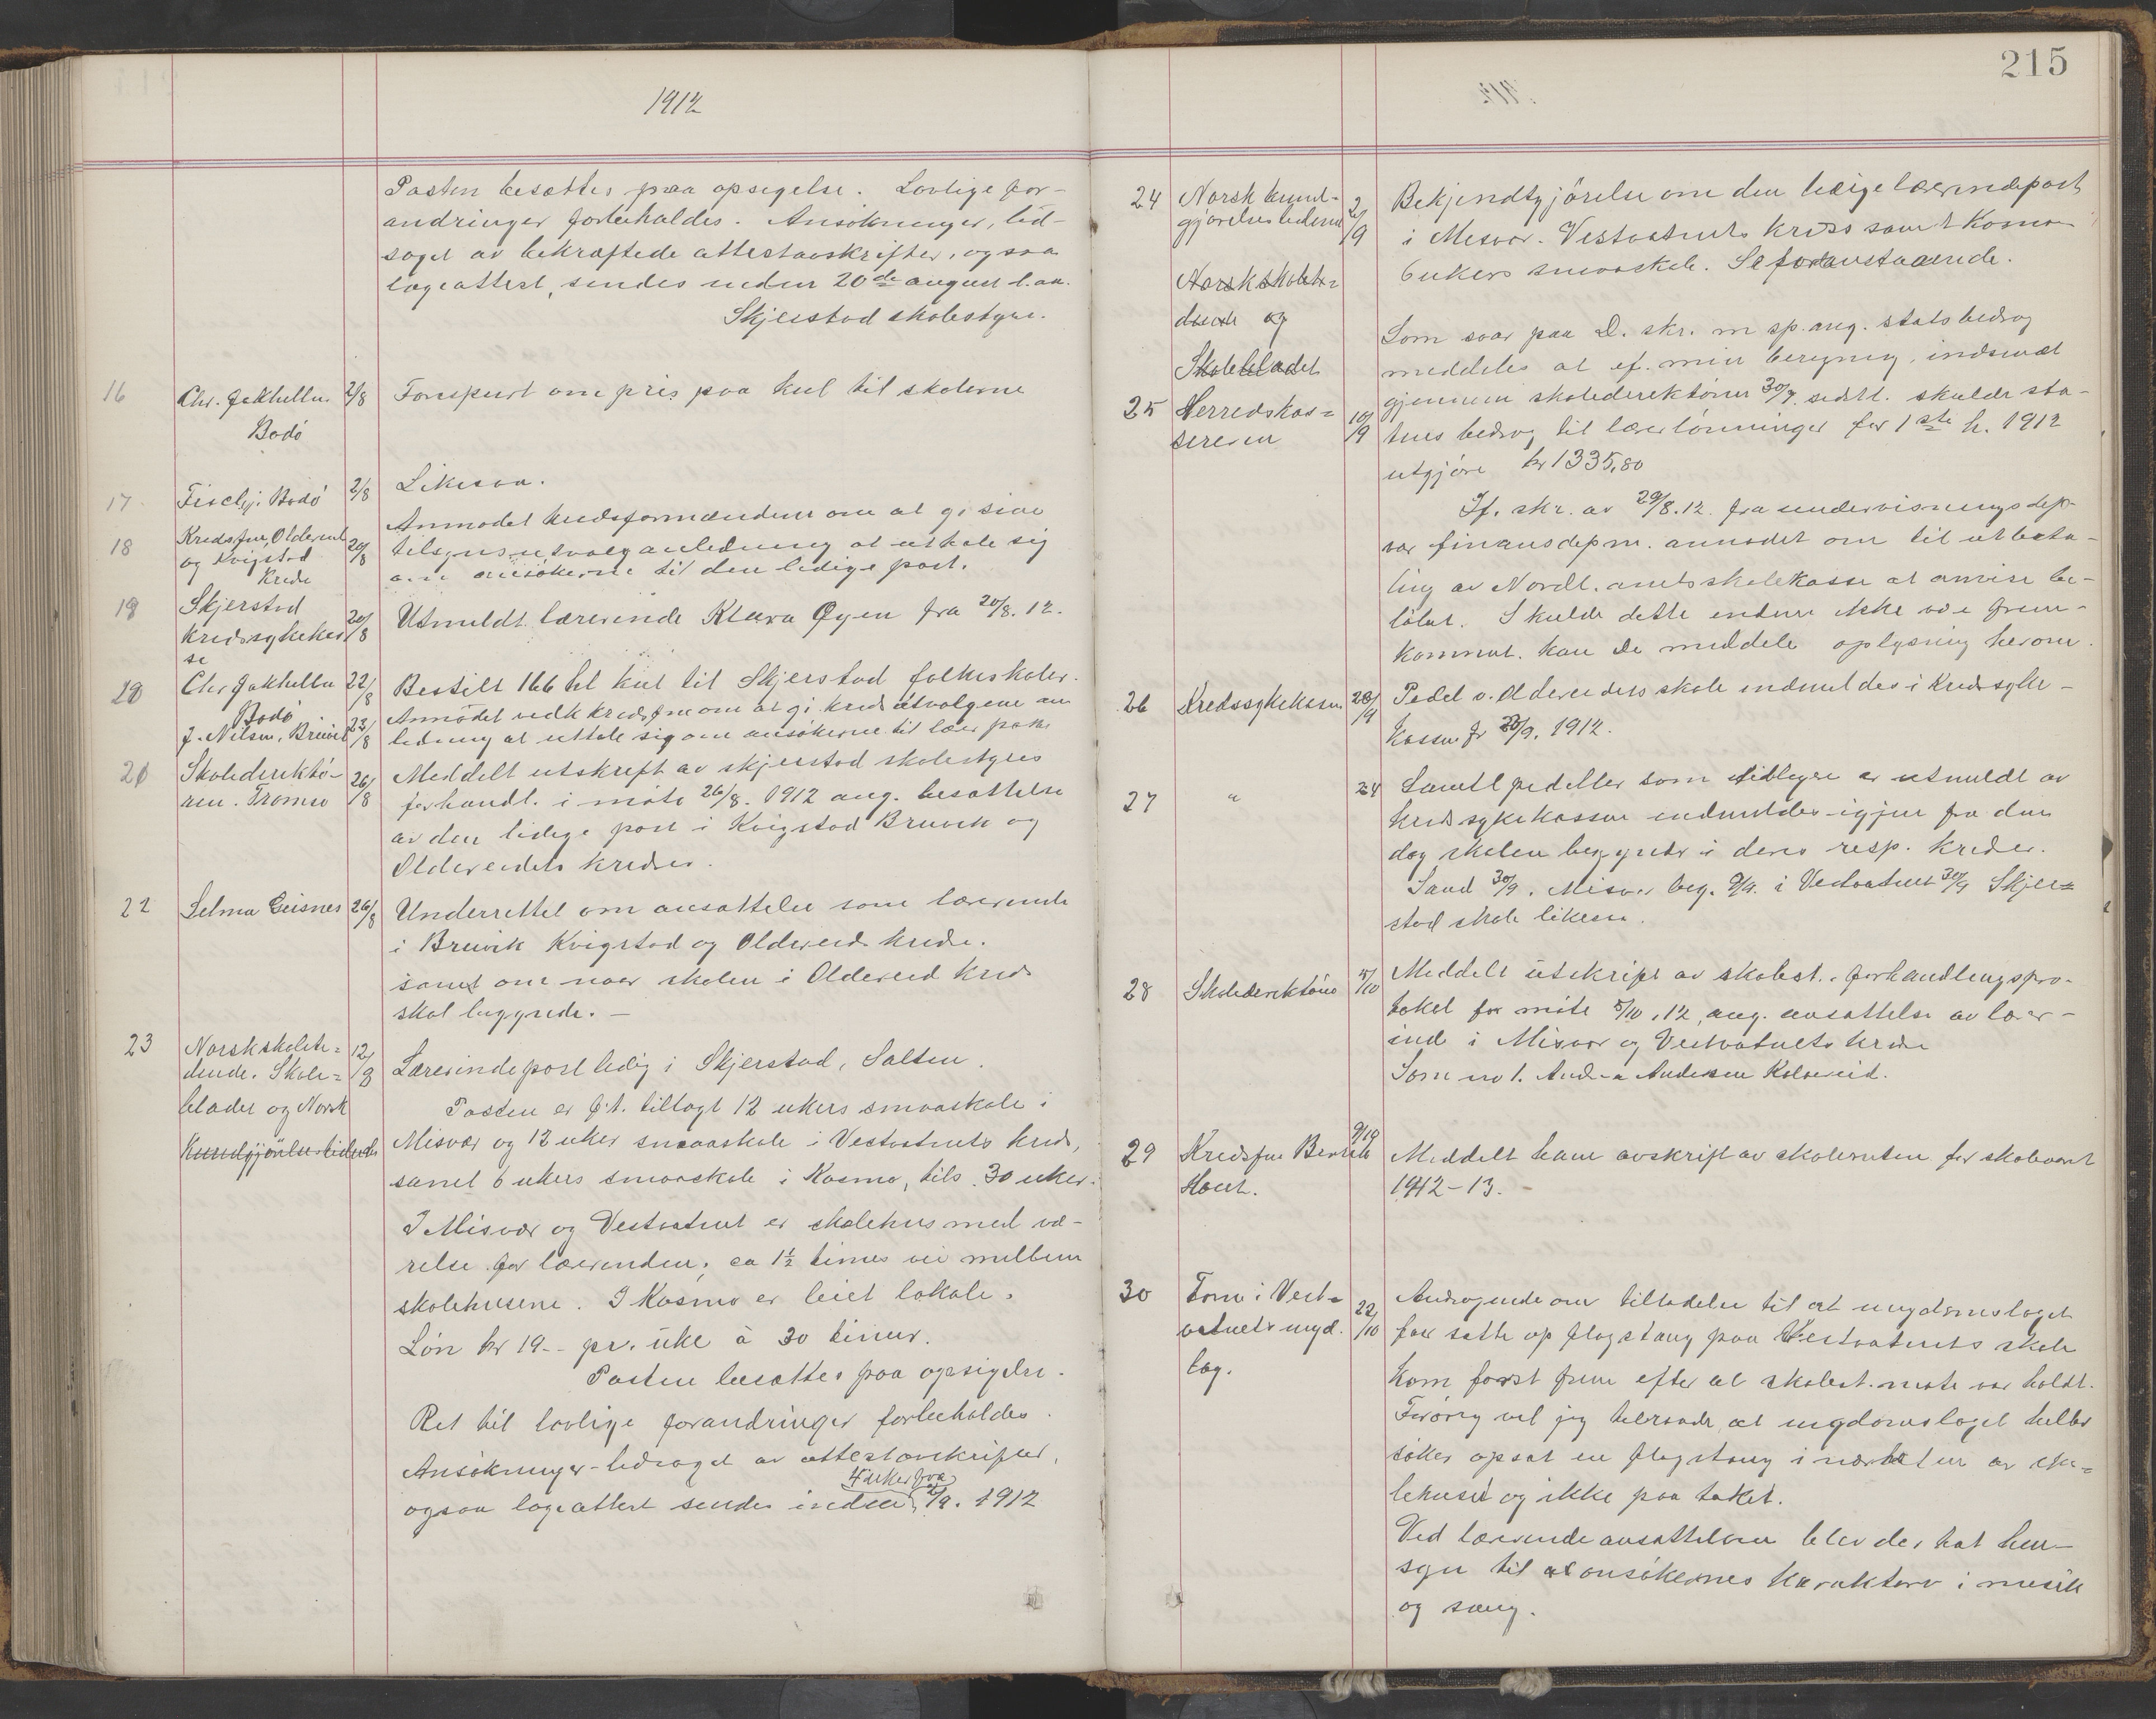 1912
Posten besættes paa opsigelse. Lovlige for-
andringer forbeholdes. Ansøkninger, led-
saget av bekræftede attestavskrifter, ogsaa
lægeattest, sendes inden 20de august d.aa.
Skjerstad skolestyre.
16 Chr. Jakhelln 2/8 Forespurt om pris paa kul til skolerne
Bodø
17 Bodø 2/8 Likesaa.
18 Kredsfm. Oldereid 20/8 Anmodet kredsformændene om at gi sine
og Kvigstad tilsynsutvalg anledning at uttale sig
kreds om ansøkerne til den ledige post.
19 Skjerstad
kredssykekas 20/8 Utmeldt lærerinde Klara Øyen fra 20/8. 12.
se
20 Chr Jakhelln 22/8 Bestilt 166 hl kul til Skjerstad folkeskoler.
Bodø Anmodet vedk kredsfm om at gi kredsutvalgene an
J. Nilsen, Breivik 23/8 ledning at uttale sig om ansøkerne til lærerposte
21 Skoledirektø- 26/8 Meddelt utskrift av skjerstad skolestyres
ren. Tromsø forhandl. i møte 26/8. 1912 ang. besættelse
av den ledige post i Kvigstad Breivik og
Oldereidets kredser.
22 Selma Geisnes 26/8 Underrettet om ansættelse som lærerinde
i Breivik Kvigstad og Oldereid kredse.
samt om naar skolen i Oldereid kreds
skal begynde. —
23 Norsk skoleti-
dende. Skole- 12/8 Lærerindepost ledig i Skjerstad, Salten.
bladet og Norsk Posten er f.t. tillagt 12 ukers smaaskole i
Kundgjørelsestidende Misvær og 12 uker smaaskole i Vestvatnets kreds,
samt 6 ukers smaaskole i Kosmo, tils. 30 uker.
I Misvær og Vestvatnet er skolehus med væ-
relse for lærerinden; ca 1½ times vei mellem
skolehusene. I Kosmo er leiet lokale.
Løn kr 19.- pr. uke à 30 timer.
Posten besættes paa opsigelse.
Ret til lovlige forandringer forbeholdes.
Ansøkninger ledsaget av attestavskrifter,
4 uker fra
ogsaa lægeattest sendes inden 2/9. 1912
215
24 Norsk kund- 2/9 Bekjendtgjørelse om den ledige lærerindepost
gjørelsestidende i Misvær. Vestvatnets kreds samt Kosmo
6 ukers smaaskole. Se foranstaaende.
Norsk skoleti-
dende og
Skolebladet
Som svar paa D. skr. m sp. ang. statsbedrag
meddeles at ef. min beregning, indsendt
gjennem skoledirektøren 30/7. sidstl. skulde sta-
25 Herredskas- 10/9 tens bedrag til lærerlønninger for 1ste h. 1912
sereren
utgjøre kr 1335,80
If. skr. av 29/8.12. fra undervisningsdep-
var finansdepm. anmodet om til utbeta-
ling av Nordl. amtsskolekasse at anvise be-
løbet. Skulde dette endnu ikke være frem-
kommet. kan De meddele oplysning herom.
26 Kredssykekassen 28/9 Pedel v. Oldereidets skole indmeldes i kredssyke-
kassen fr 30/9. 1912.
27 " 24 Samtl pedeller som tidligere er utmeldt av
kredssykekassen indmeldes igjen fra den
dag skolen begynder i deres resp. kredser.
Sand 30/9. Misvær beg. 9/9. i Vestvatnet 30/9 Skjer-
stad skole likesaa.
28 Skoledirektøren 5/10 Meddelt utskrift av skolest. forhandlingspro-
tokol for møte 5/10.12, ang. ansættelse av lærer-
inde i Misvær og Vestvatnets kredse
Som no 1. Andrea Andersen Kolvereid.
29 Kredsfm 9/10 Meddelt ham avskrift av skoleruten for skoleaaret
1912-13.
30 Form i Vest-
vatnets ungd. 22/10 Andragende om tilladelse til at ungdomslaget
lag. faar sætte op flagstang paa Vestvatnets skole
kom først frem efter at skolest. møte var holdt.
Forøvrig vil jeg tilraade at ungdomslaget heller
søker opsat en flagstang i nærheten av sko-
lehuset og ikke paa taket.
Ved lærerindeansættelsen blev der tat hen-
syn til at ansøkernes karakterer i musik
og sang.